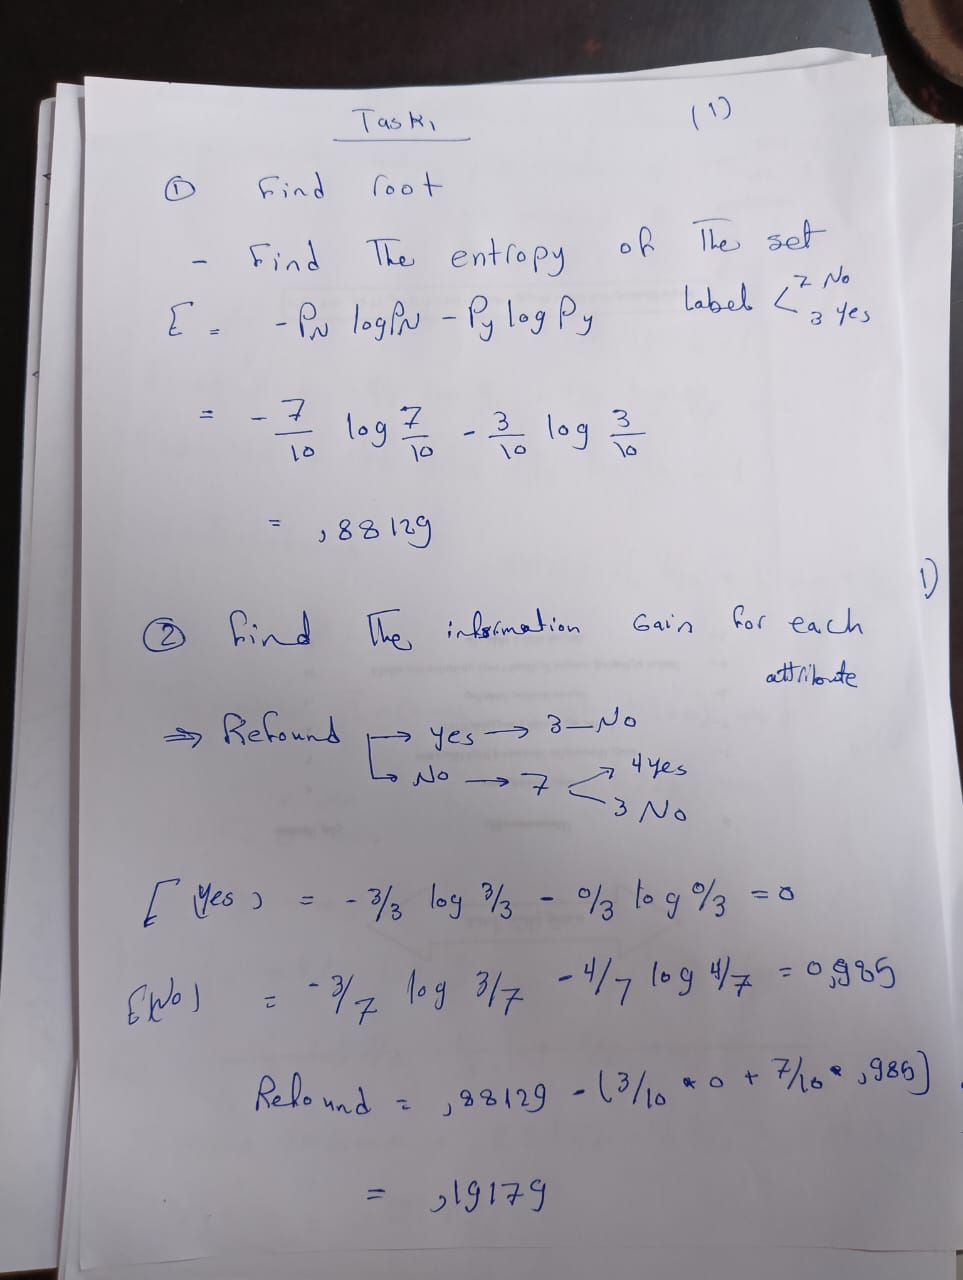 Task1 (1)
① Find root
- Find The entropy of The set
label < 7 No
3 yes
E = -PN log PN - Py log Py
= - 7/10 log 7/10 - 3/10 log 3/10
= ,88129
1)
② Find The information Gain for each
attribute
⇒ Refound → yes → 3-No
→ No → 7 < 4 yes
3 No
E (Yes) = - 3/3 log 3/3 - 0/3 log 0/3 = 0
E(No) = - 3/7 log 3/7 - 4/7 log 4/7 = 0,985
Refound = ,88129 - (3/10 * 0 + 7/10 * ,985)
= ,19179